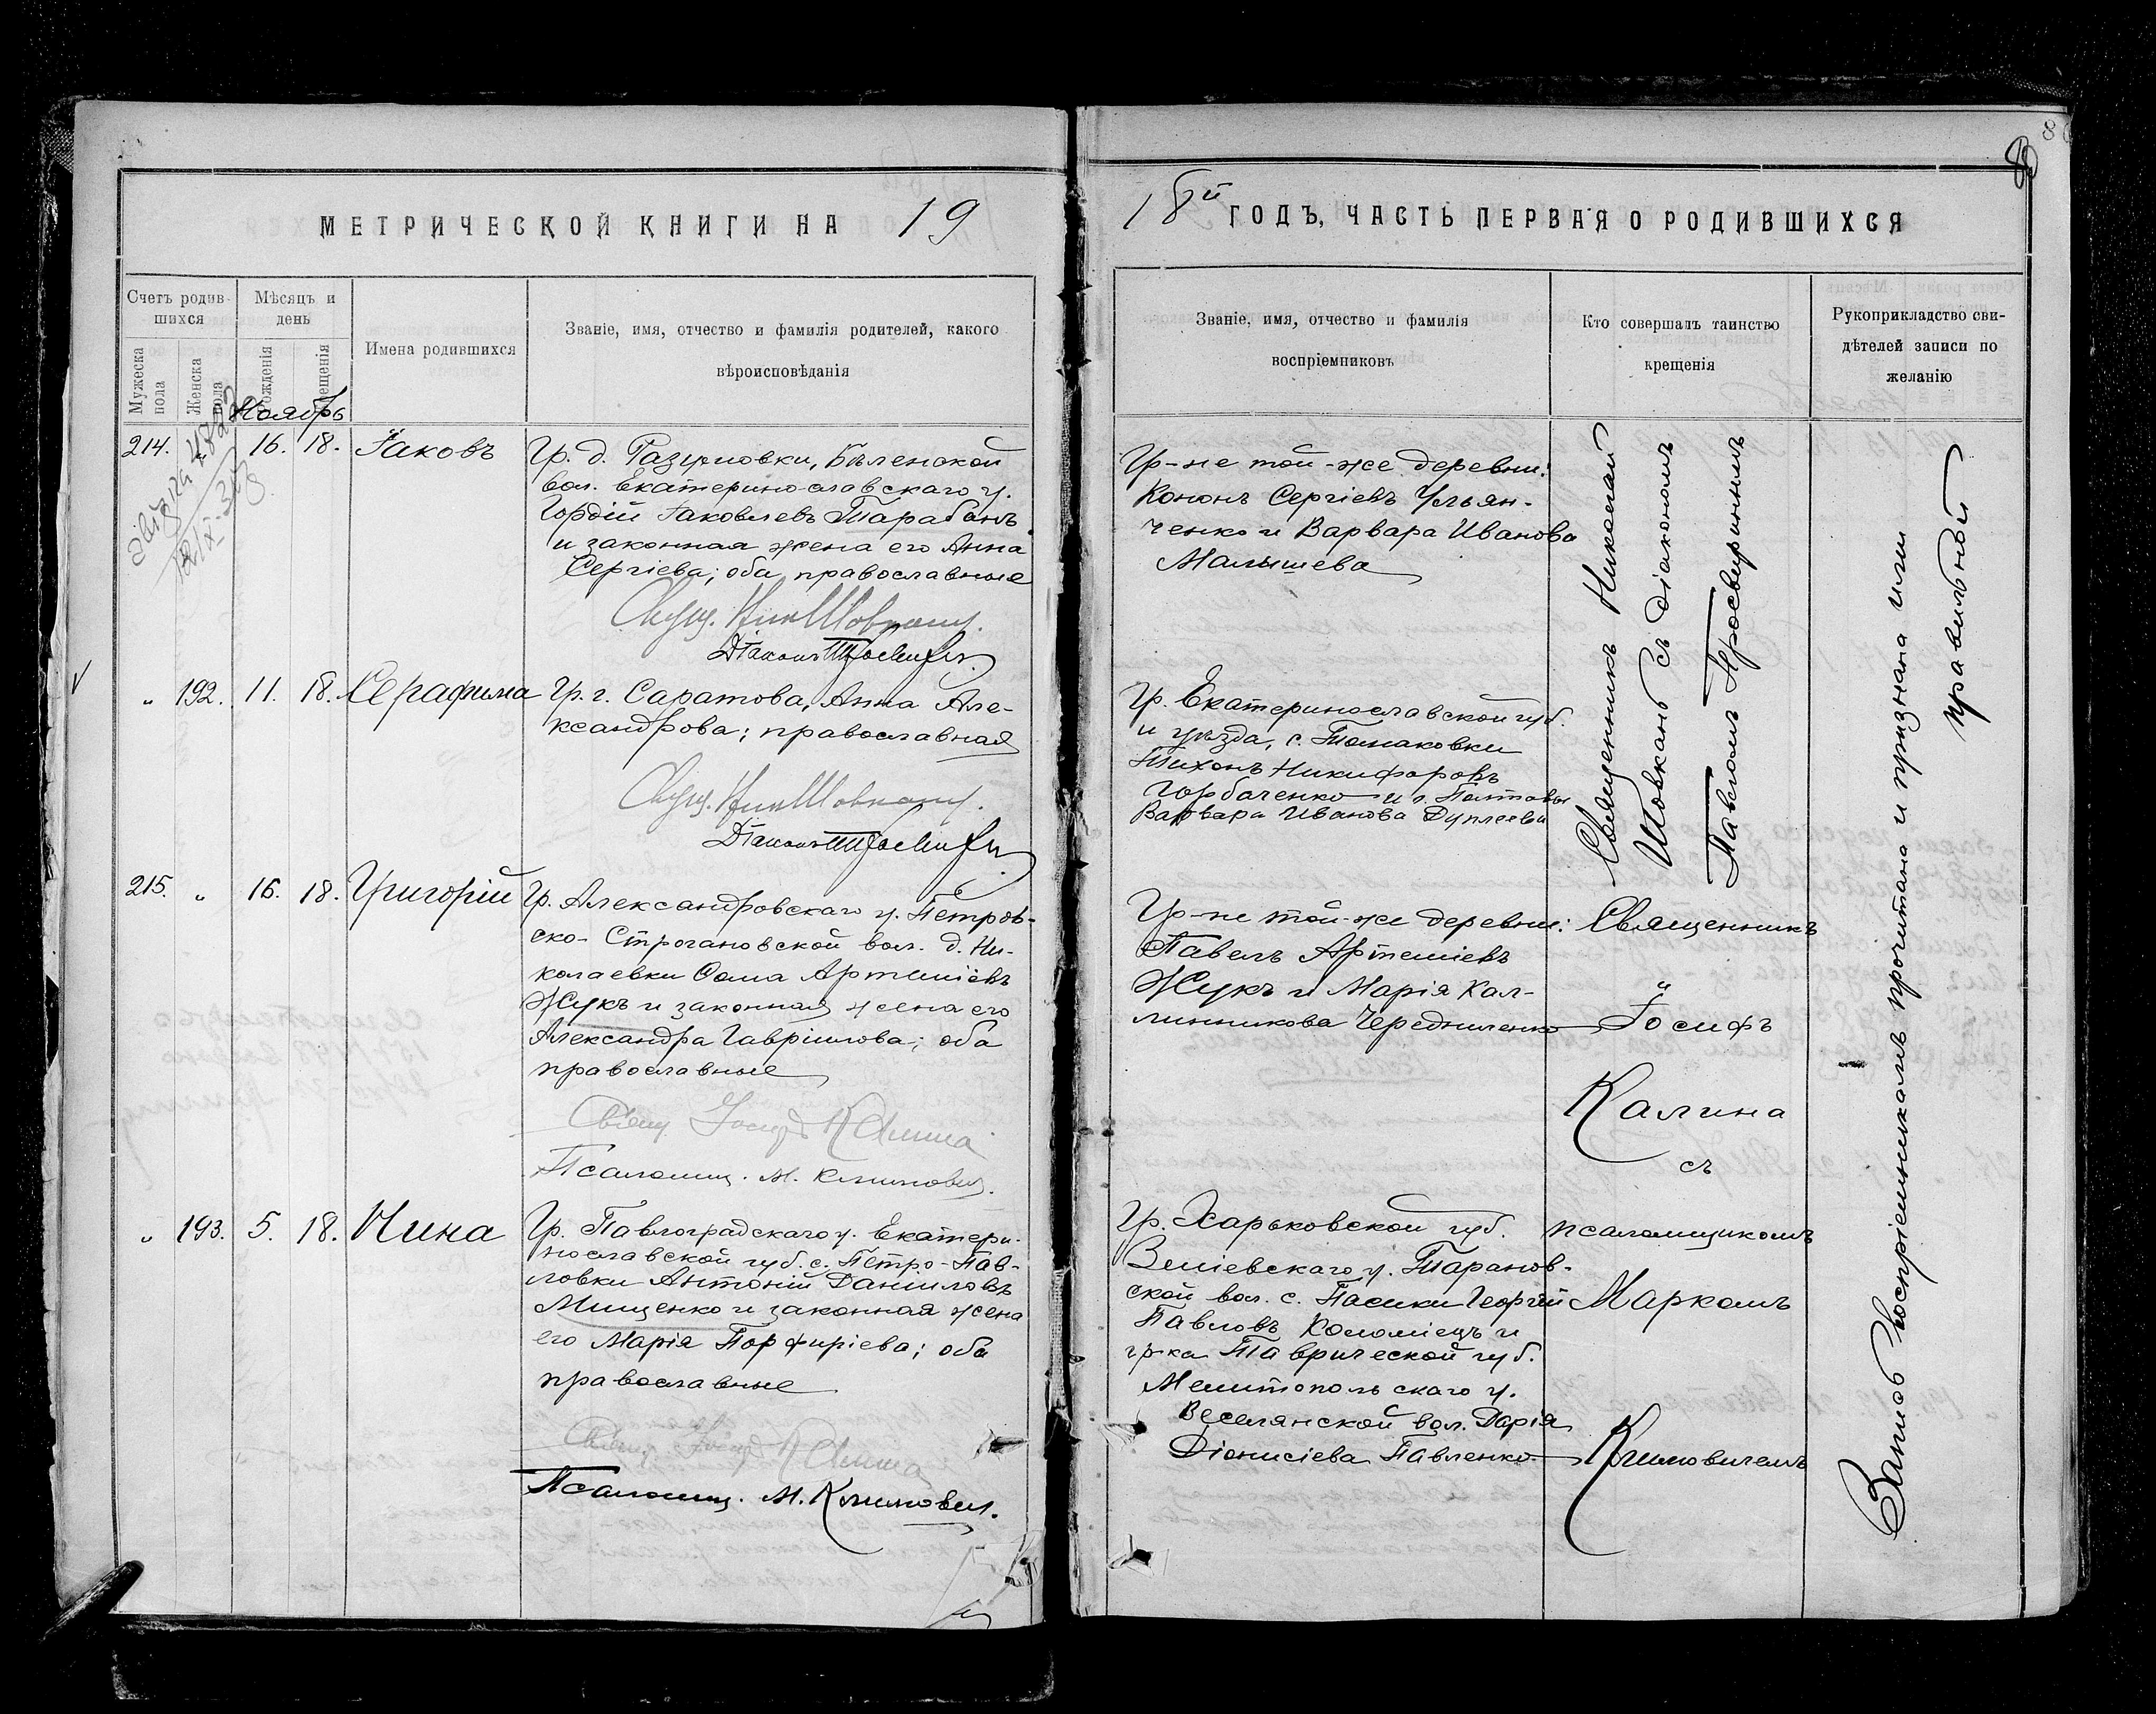 МЕТРИЧЕСКОЙ КНИГИ НА 19
18й ГОДЪ, ЧАСТЬ ПЕРВАЯ О РОДИВШИХСЯ
Счетъ родив-
шихся
Мужеска пола
Женска пола
Мѣсяцъ и
день
рожденія
крещенія
Имена родившихся
Званіе, имя, отчество и фамилія родителей, какого
вѣроисповѣданія
Званіе, имя, отчество и фамилія
воспріемниковъ
Кто совершалъ таинство
крещенія
Рукоприкладство сви-
дѣтелей записи по
желанію
Ноябрь
214. 16. 18. Іаковъ
Гр. д. Разумовки, Бѣленской
вол. Екатеринославскаго у.
Гордій Іаковлевъ Тарабанъ
и законная жена его Анна
Сергіева; оба православные
Гр-не той-же деревни:
Кононъ Сергіевъ Ульян-
ченко и Варвара Иванова
Малышева
Священникъ Николай
Шовкань съ діакономъ
Павломъ Просвиринымъ
" 192. 11. 18. Серафима
Гр. г. Саратова, Анна Але-
ксандрова; православная
Гр. Екатеринославской губ.
и уѣзда, с. Томаковки
Тихонъ Никифоровъ
Горбаченко и г. Полтавы
Варвара Иванова
215. " 16. 18. Григорій
Гр. Александровскаго у. Петров-
ско-Строгановской вол. д. Ни-
колаевки Ѳома Артеміевъ
Жукъ и законная жена его
Александра Гавріилова; оба
православные
Свящ. Іосифъ Калина
Псаломщ. М. Климович.
Гр-не той-же деревни:
Павелъ Артеміевъ
Жукъ и Марія Кал-
линникова Чередниченко
Священникъ
"
Іосифъ
Калина
съ
псаломщикомъ
Маркомъ
Климовичемъ
" 193. 5. 18. Нина
Гр. Павлоградскаго у. Екатери-
нославской губ. с. Петро-Пав-
ловки Антоній Даніиловъ
Мищенко и законная жена
его Марія Порфиріева; оба
православные
Свящ. Іосифъ Калина
Псаломщ. М. Климович.
Гр. Харьковской губ.
Зміевскаго у. Таранов-
ской вол. с. Пасики Георгій
Павловъ Коломіецъ и
гр-ка Таврической губ.
Мелитопольскаго у.
Веселянской вол. Дарія
Діонисіева Павленко
Запись воспріемникамъ прочитана и признана ими
правильной